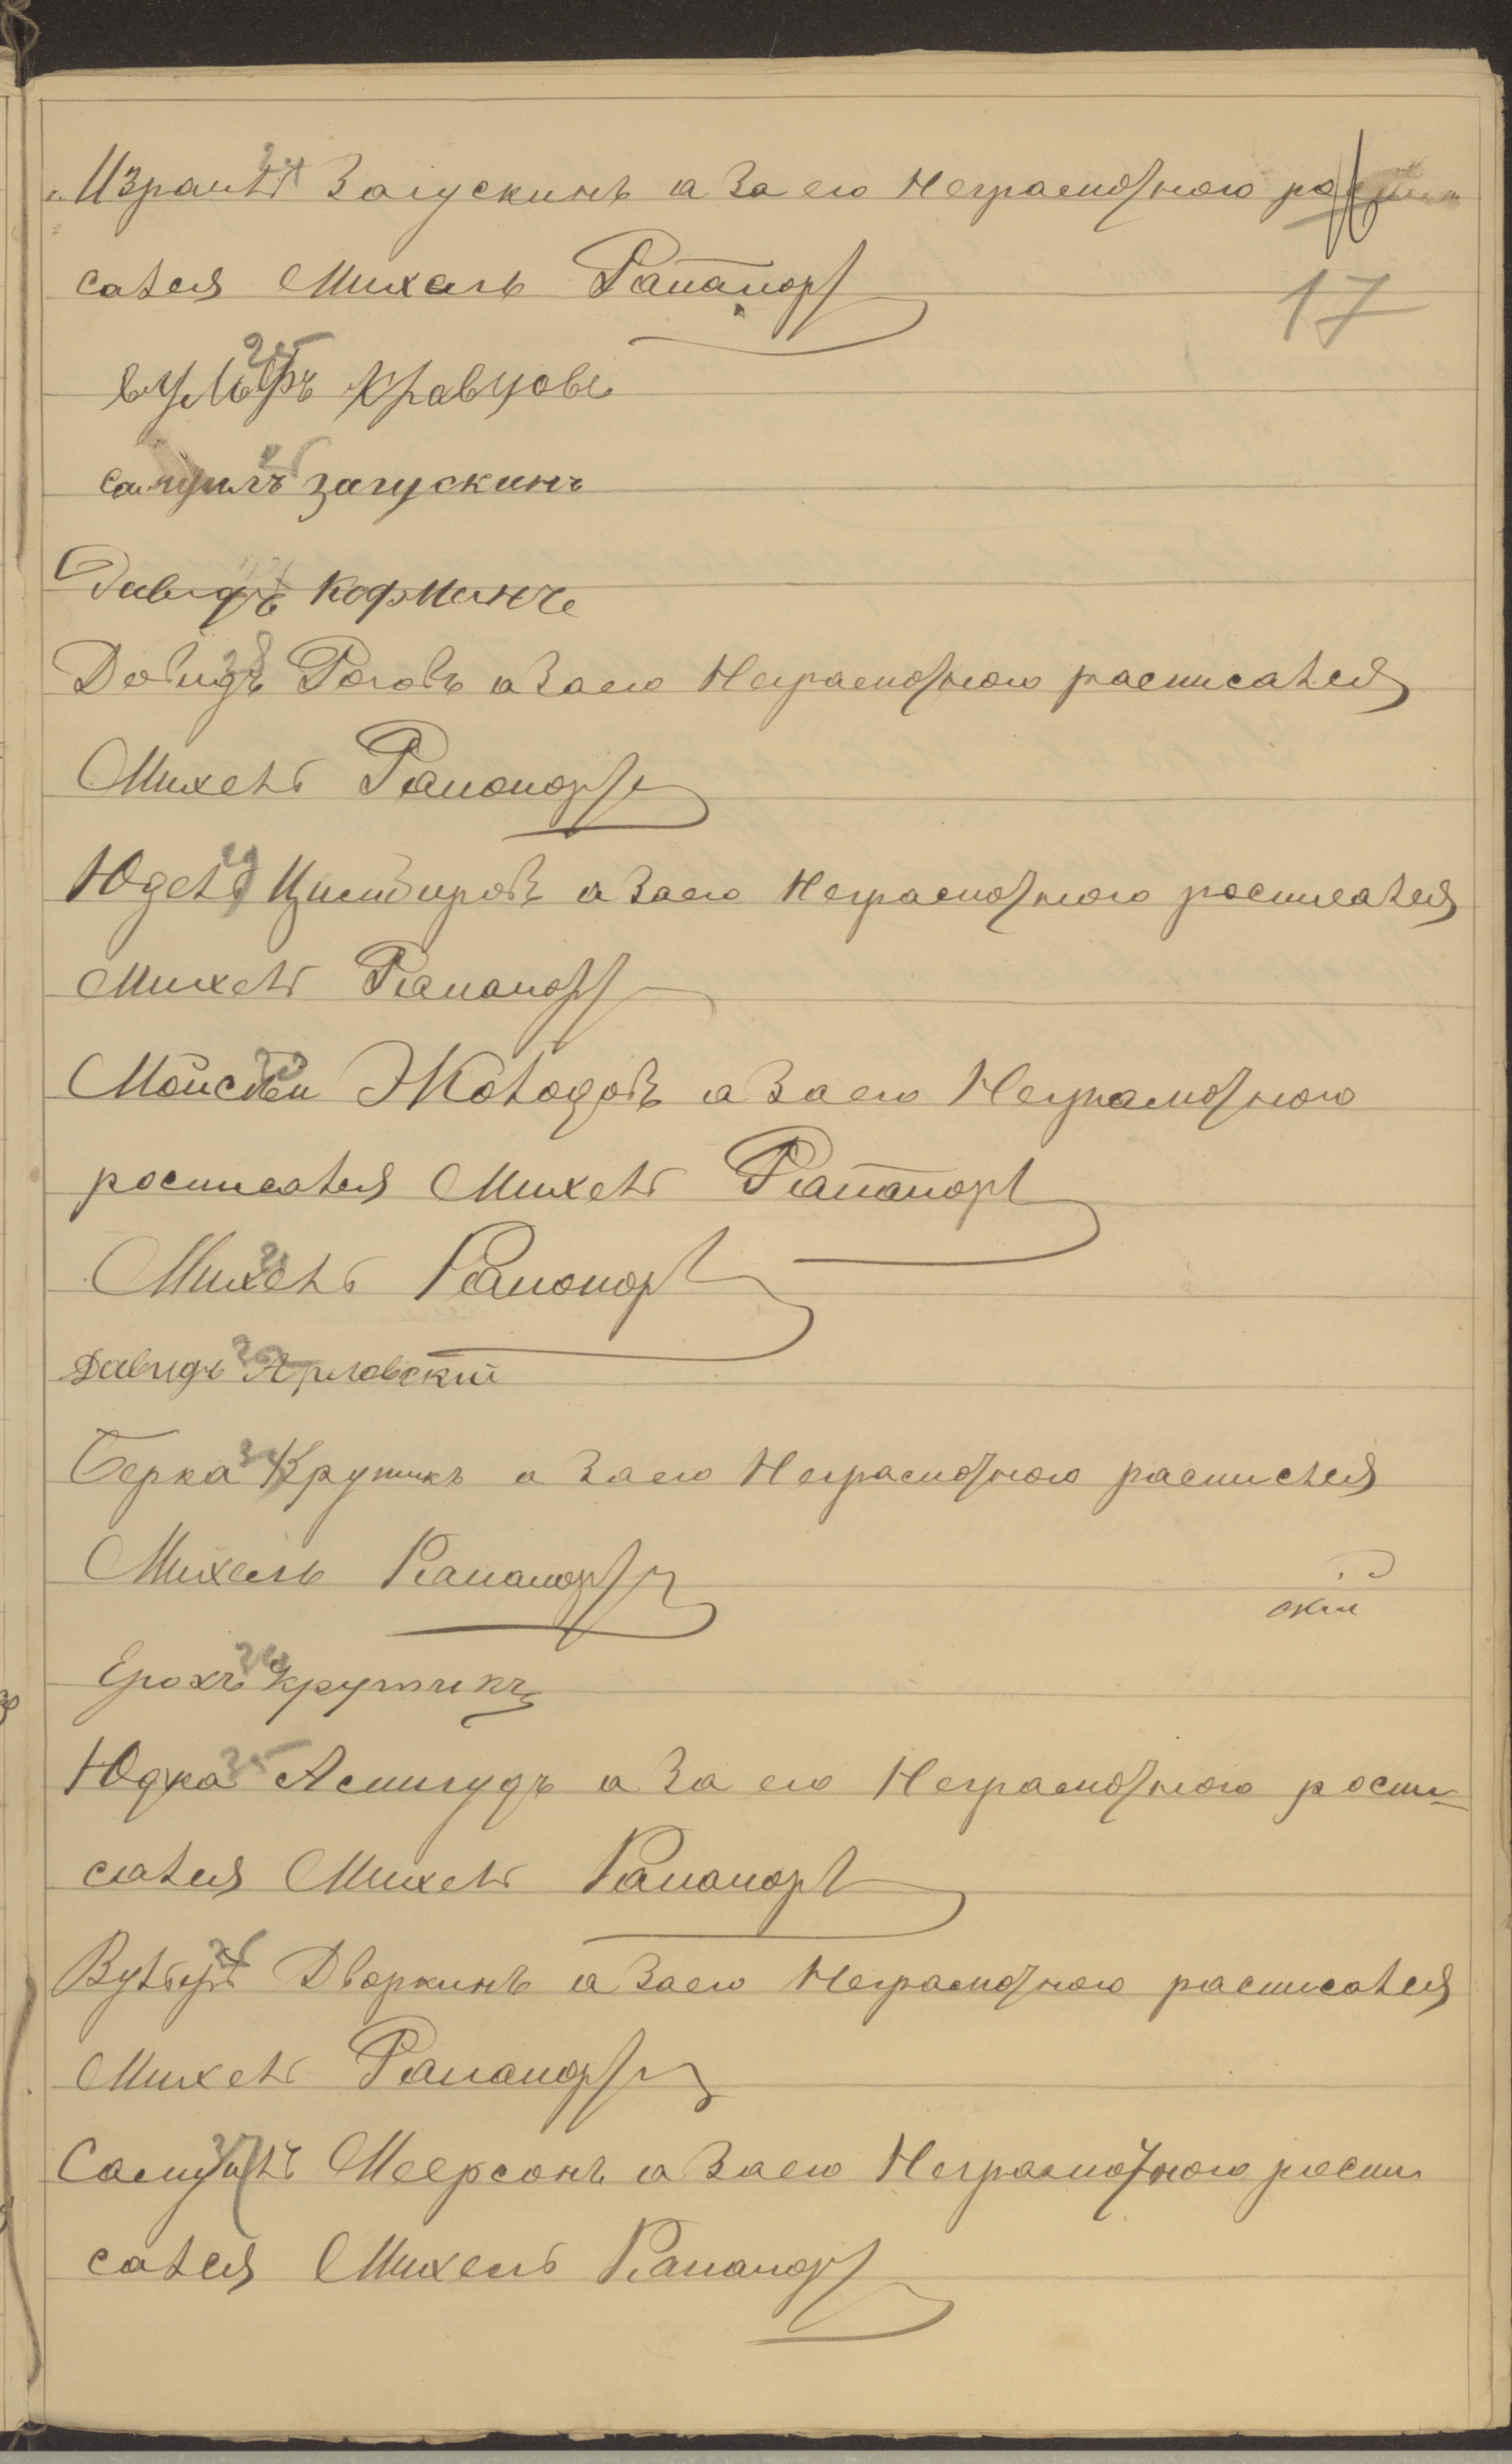 Израиль Загускинъ а за его Неграмотного распи
17
сался Михель Рапапорт
Вульфъ Кравцовъ
Самуилъ Загускинъ
Давидъ Кофманъ
Довидъ Роговъ а за его Неграмотного расписался
Михель Рапопорт
Юдель а за его Неграмотного росписался
Михель Рапапорт
Мойсѣй Жолодовъ а за его Неграмотного
росписался Михель Рапапорт
Михель Рапопорт
Давидъ Арловскій
Берка Крупикъ а за его Неграмотного распислся
Михель Рапапорт
скій
Крутикъ
Юдка а за его Неграмотного роспи-
сался Михель Рапапорт
Вульф Дворкинъ а за его Неграмотного расписался
Михель Рапапорт
Самуилъ Меерсонъ а за его Неграмотного роспи
сался Михель Рапапорт